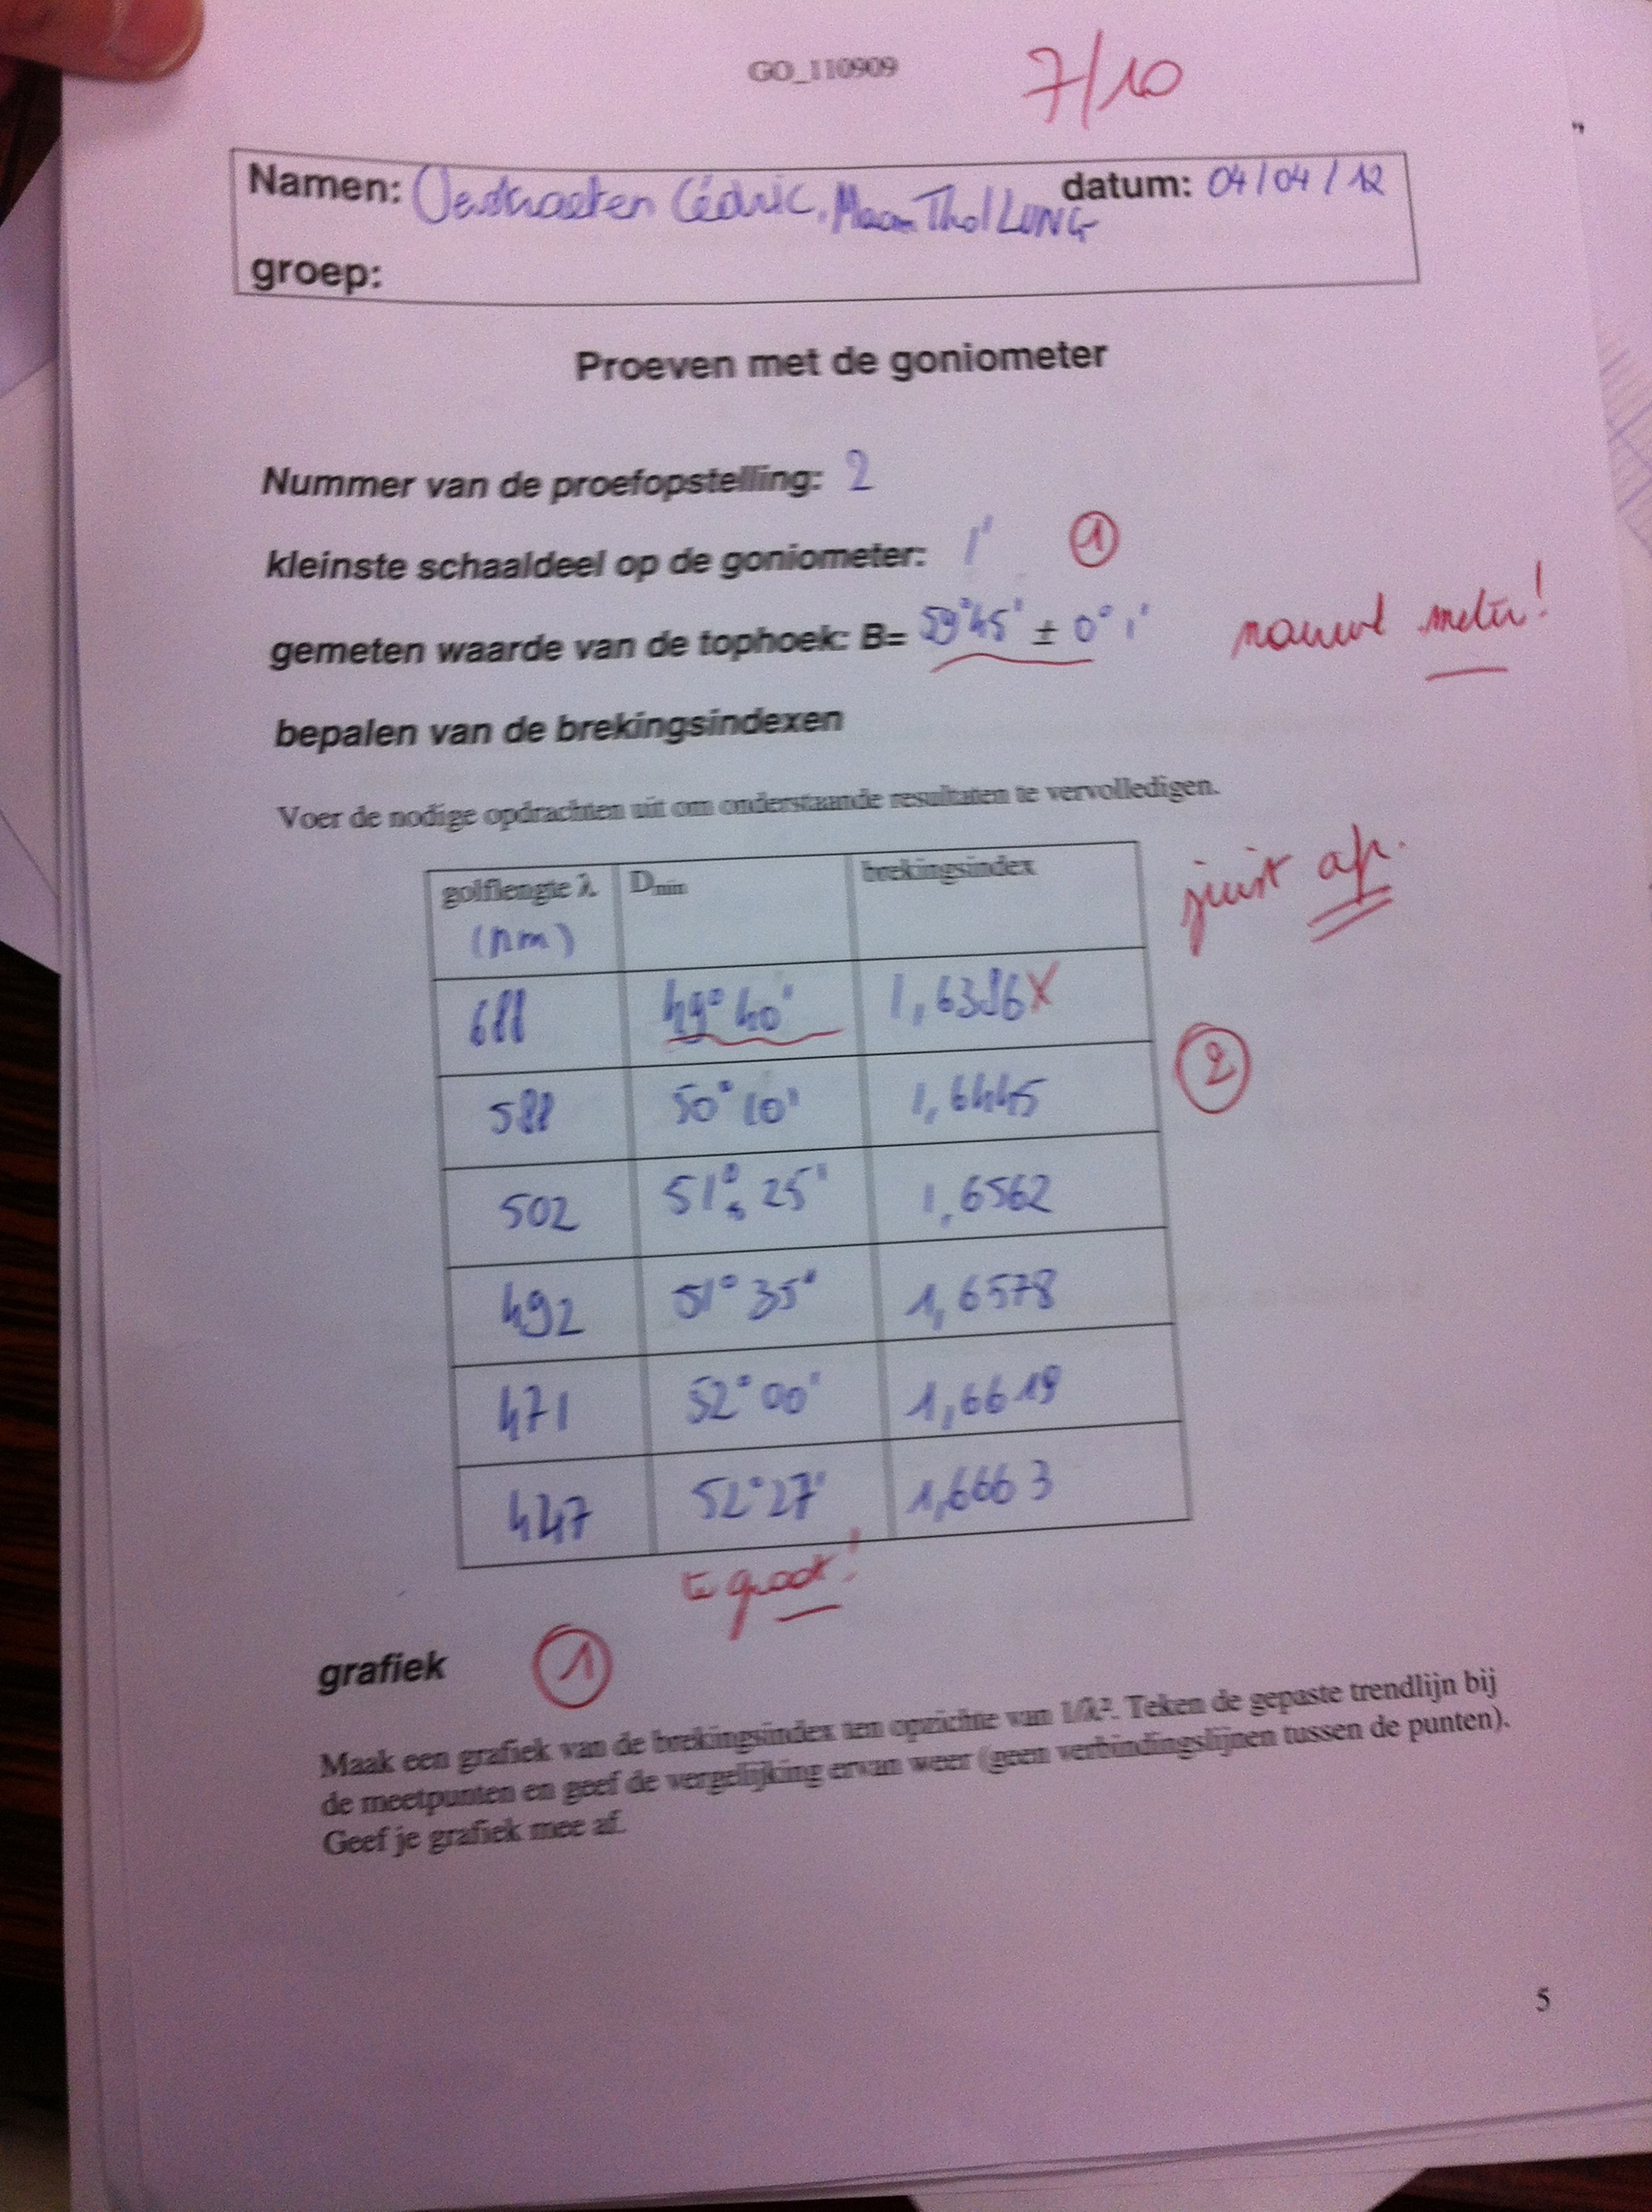 GO_110909
7/10
Namen: Verstraeten Cédric, Thol LUNG datum: 04/04/12
groep:
Proeven met de goniometer
Nummer van de proefopstelling: 2
kleinste schaaldeel op de goniometer: 1' 1
gemeten waarde van de tophoek: B= 59°45' ± 0°1'
bepalen van de brekingsindexen
Voer de nodige opdrachten uit om onderstaande resultaten te vervolledigen.
golflengte λ (nm) Dmin brekingsindex
juist
688 49°40' 1,6396 X
2
588 50°10' 1,6445
502 51° 25' 1,6562
492 51°35' 1,6578
471 52°00' 1,6619
447 52°27' 1,6663
te groot!
grafiek 1
Maak een grafiek van de brekingsindex ten opzichte van 1/λ². Teken de gepaste trendlijn bij
de meetpunten en geef de vergelijking ervan weer (geen verbindingslijnen tussen de punten).
Geef je grafiek mee af.
5